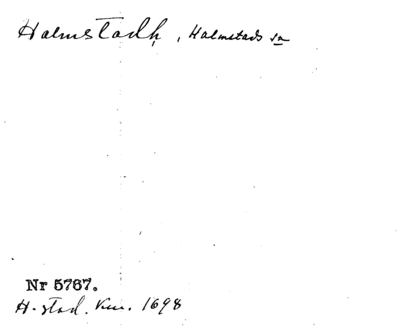 Halmstadh, Halmstads sn
Nr 5767.
H-stad. Kun. 1698